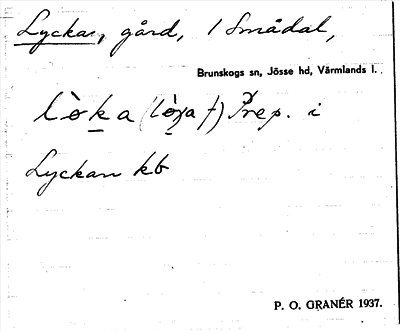 Lyckan, gård, i Smådal,
Brunskogs sn, Jösse hd, Värmlands l.
Prep. i
Lyckan kb
P. O. GRANÉR 1937.